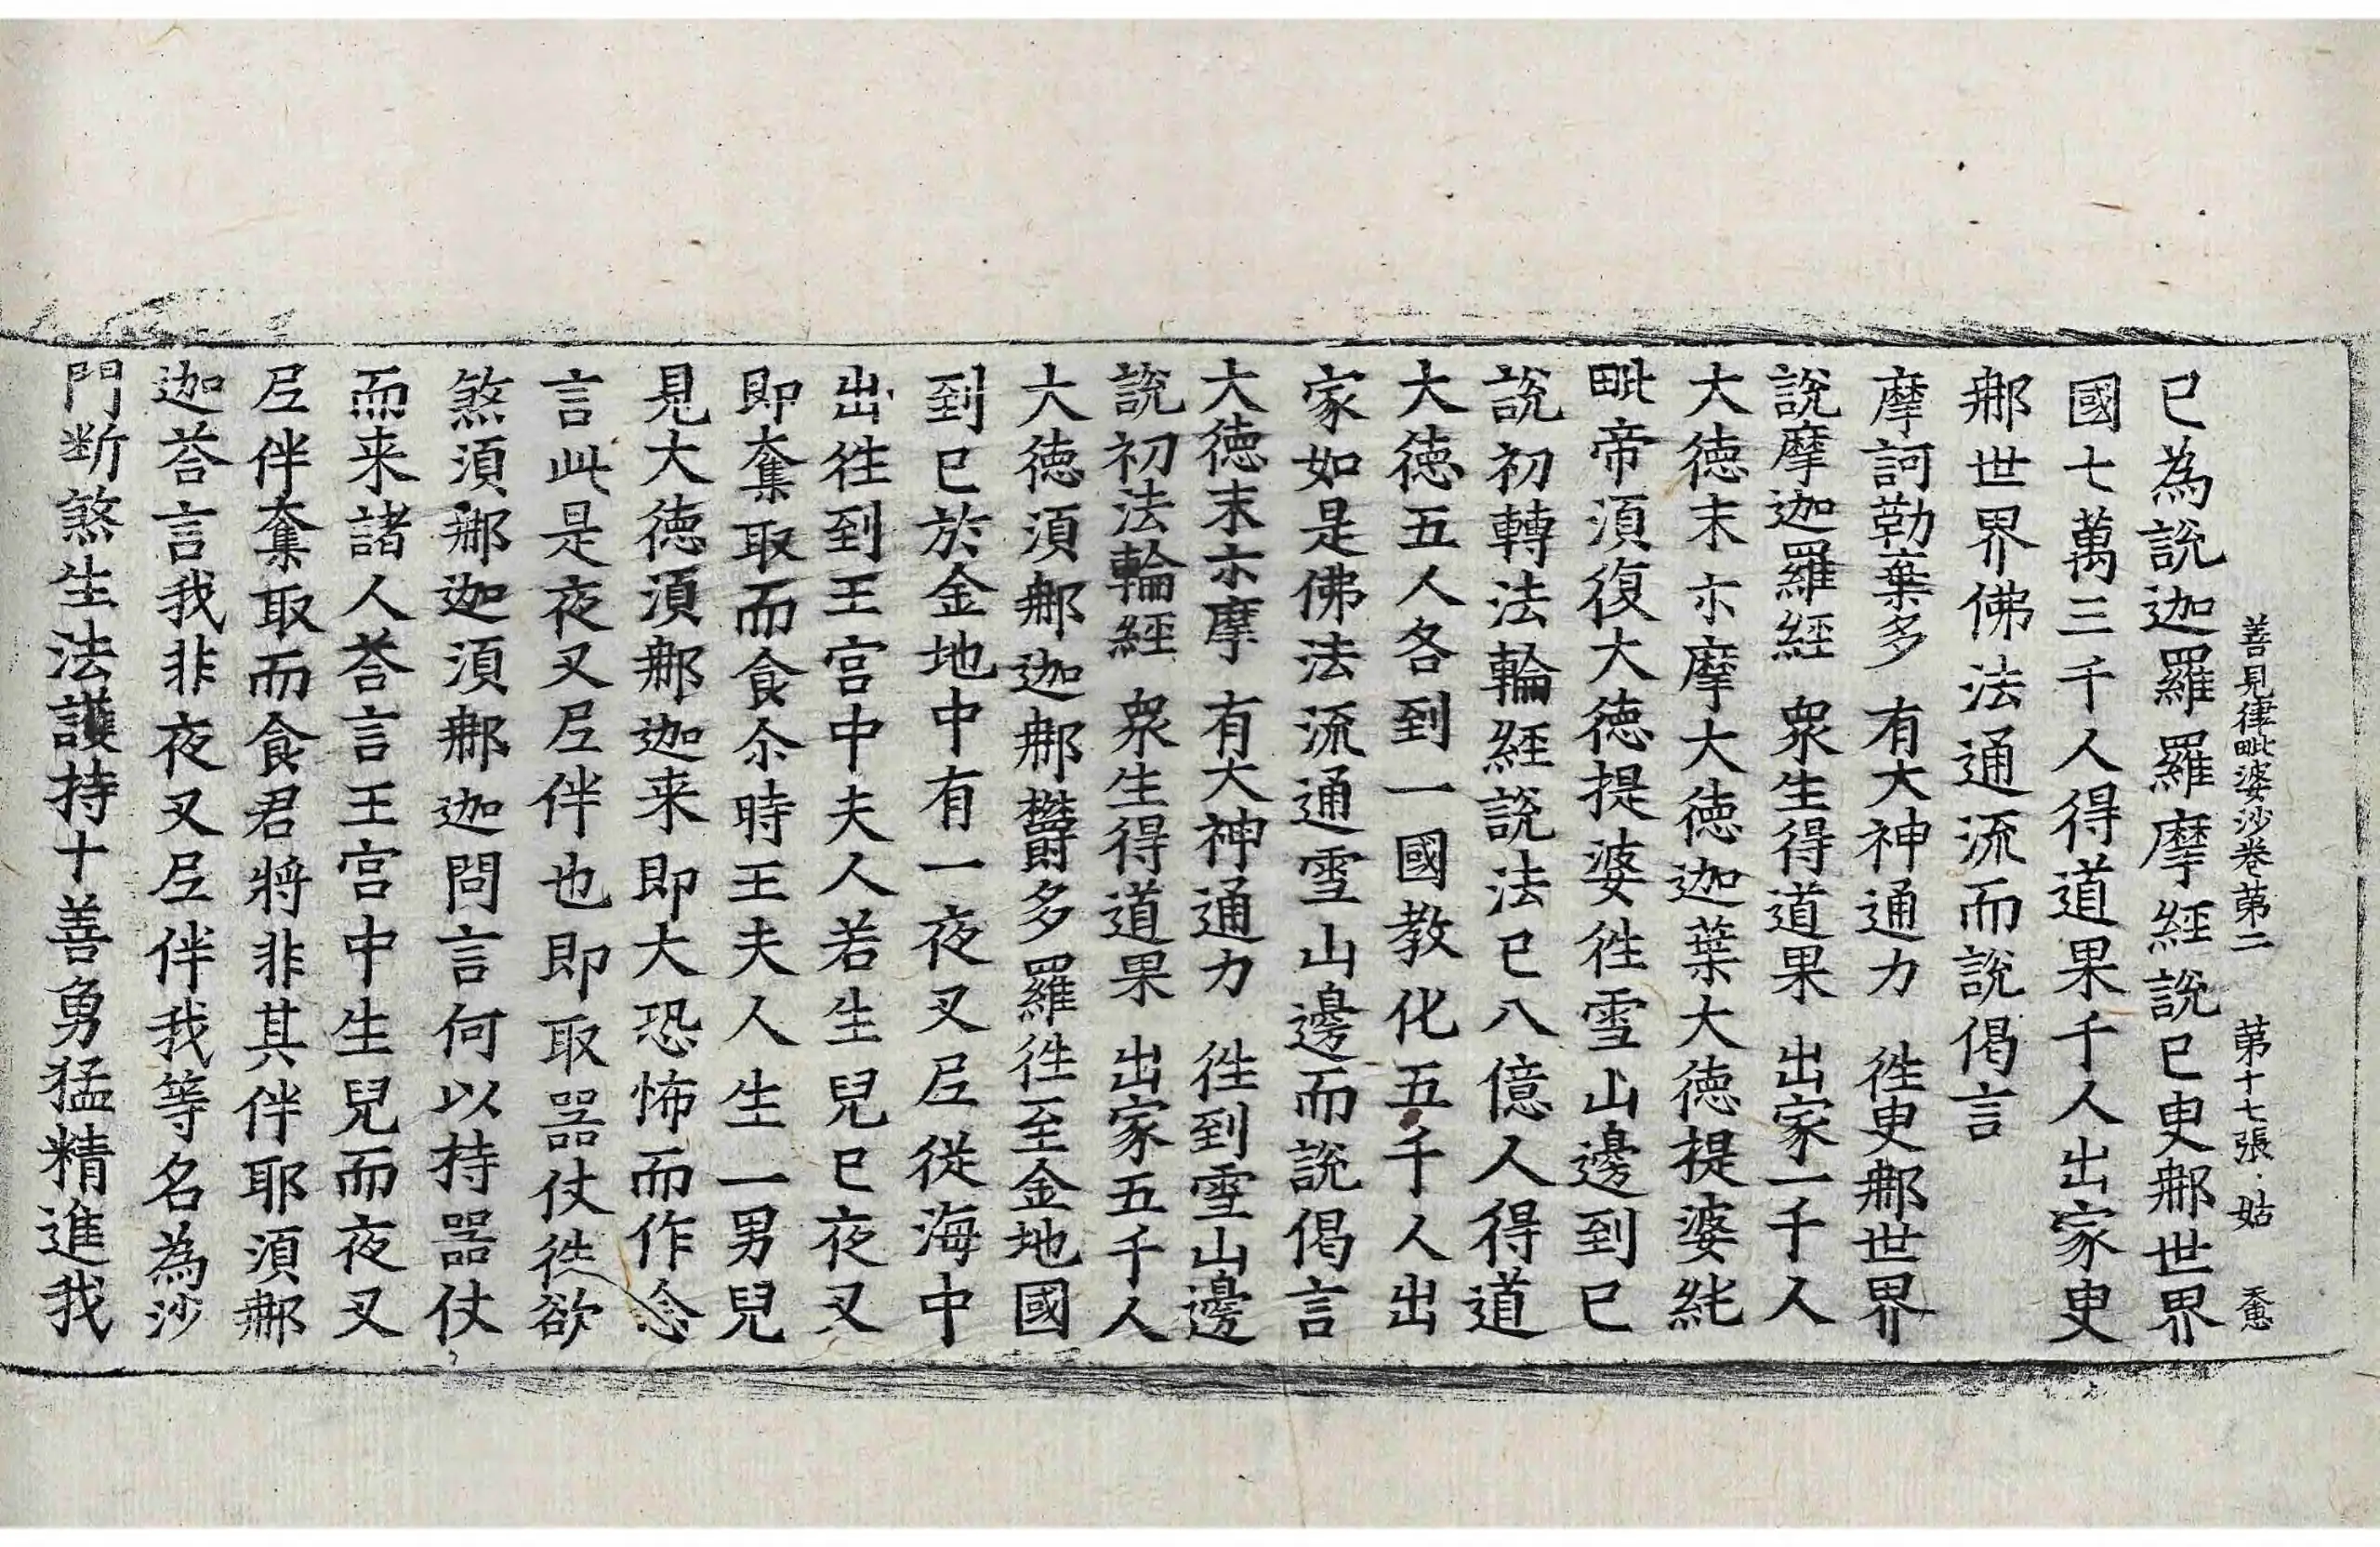 善見律毗婆沙卷苐二　苐十七張　姑
已為說迦羅羅摩經說已臾那世界
國七萬三千人得道果千人出家臾
那世界佛法通流而說偈言
摩訶勒棄多　有大神通力　徃臾那世界
說摩迦羅經　衆生得道果　出家一千人
大徳末示摩大徳迦葉大徳提婆純
毗帝須復大徳提婆徃雪山邊到已
說初轉法輪經說法已八億人得道
大徳五人各到一國教化五千人出
家如是佛法流通雪山邊而說偈言
大徳末示摩　有大神通力　徃到雪山邊
說初法輪經　衆生得道果　出家五千人
大徳須那迦那欝多羅徃至金地國
到已於金地中有一夜叉尼從海中
出徃到王宮中夫人若生兒已夜叉
即奪取而食尒時王夫人生一男兒
見大徳須那迦来即大恐怖而作念
言此是夜叉尼伴也即取器仗徃欲
煞須那迦須那迦問言何以持器仗
而来諸人荅言王宮中生兒而夜叉
尼伴奪取而食君將非其伴耶須那
迦荅言我非夜叉尼伴我等名為沙
門断煞生法護持十善勇猛精進我